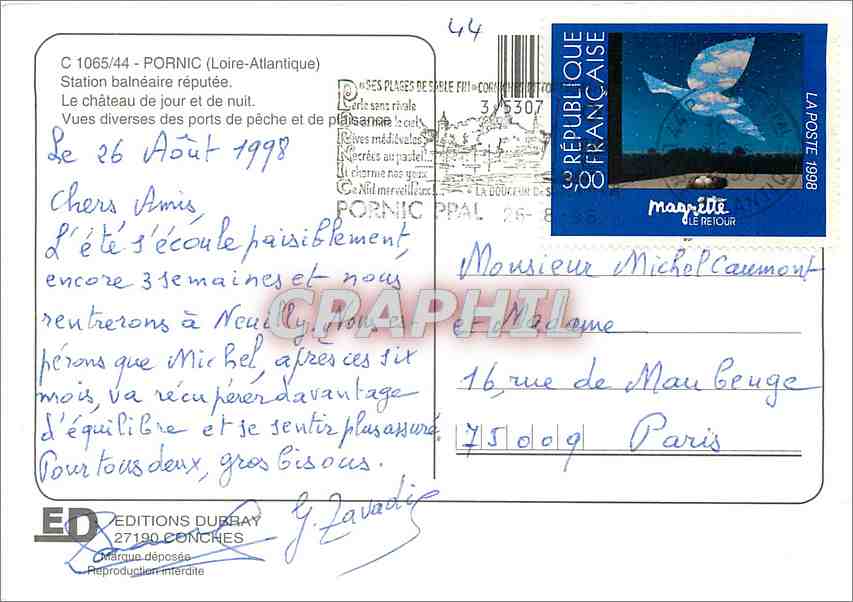 44
C 1065/44 - PORNIC (Loire-Atlantique)
Station balnéaire réputée.
Le château de jour et de nuit.
Vues diverses des ports de pêche et de plaisance
Le 26 Août 1998
Chers Amis,
L'été s'écoule paisiblement,
encore 3 semaines et nous
rentrerons à Neuilly. Nous es-
pérons que Michel, après ces six
mois, va récupérer davantage
d'équilibre et se sentir plus assuré.
Pour tous deux, gros bisous.
G. Zavadil
ED
EDITIONS DUBRAY
27190 CONCHES
Marque déposée
Reproduction interdite
SES PLAGES DE SABLE FIN
3/5307
Perle sans rivale
le ciel
Rives médiévales
Recrées au pastel
charme nos yeux
Nid merveilleux
LA DOUCEUR DE
PORNIC PPAL 26-8-98
RÉPUBLIQUE
FRANÇAISE
3,00
LA POSTE 1998
magritte
LE RETOUR
Monsieur Michel Caumont
et Madame
16, rue de Maubeuge
75009 Paris
CPAPHIL